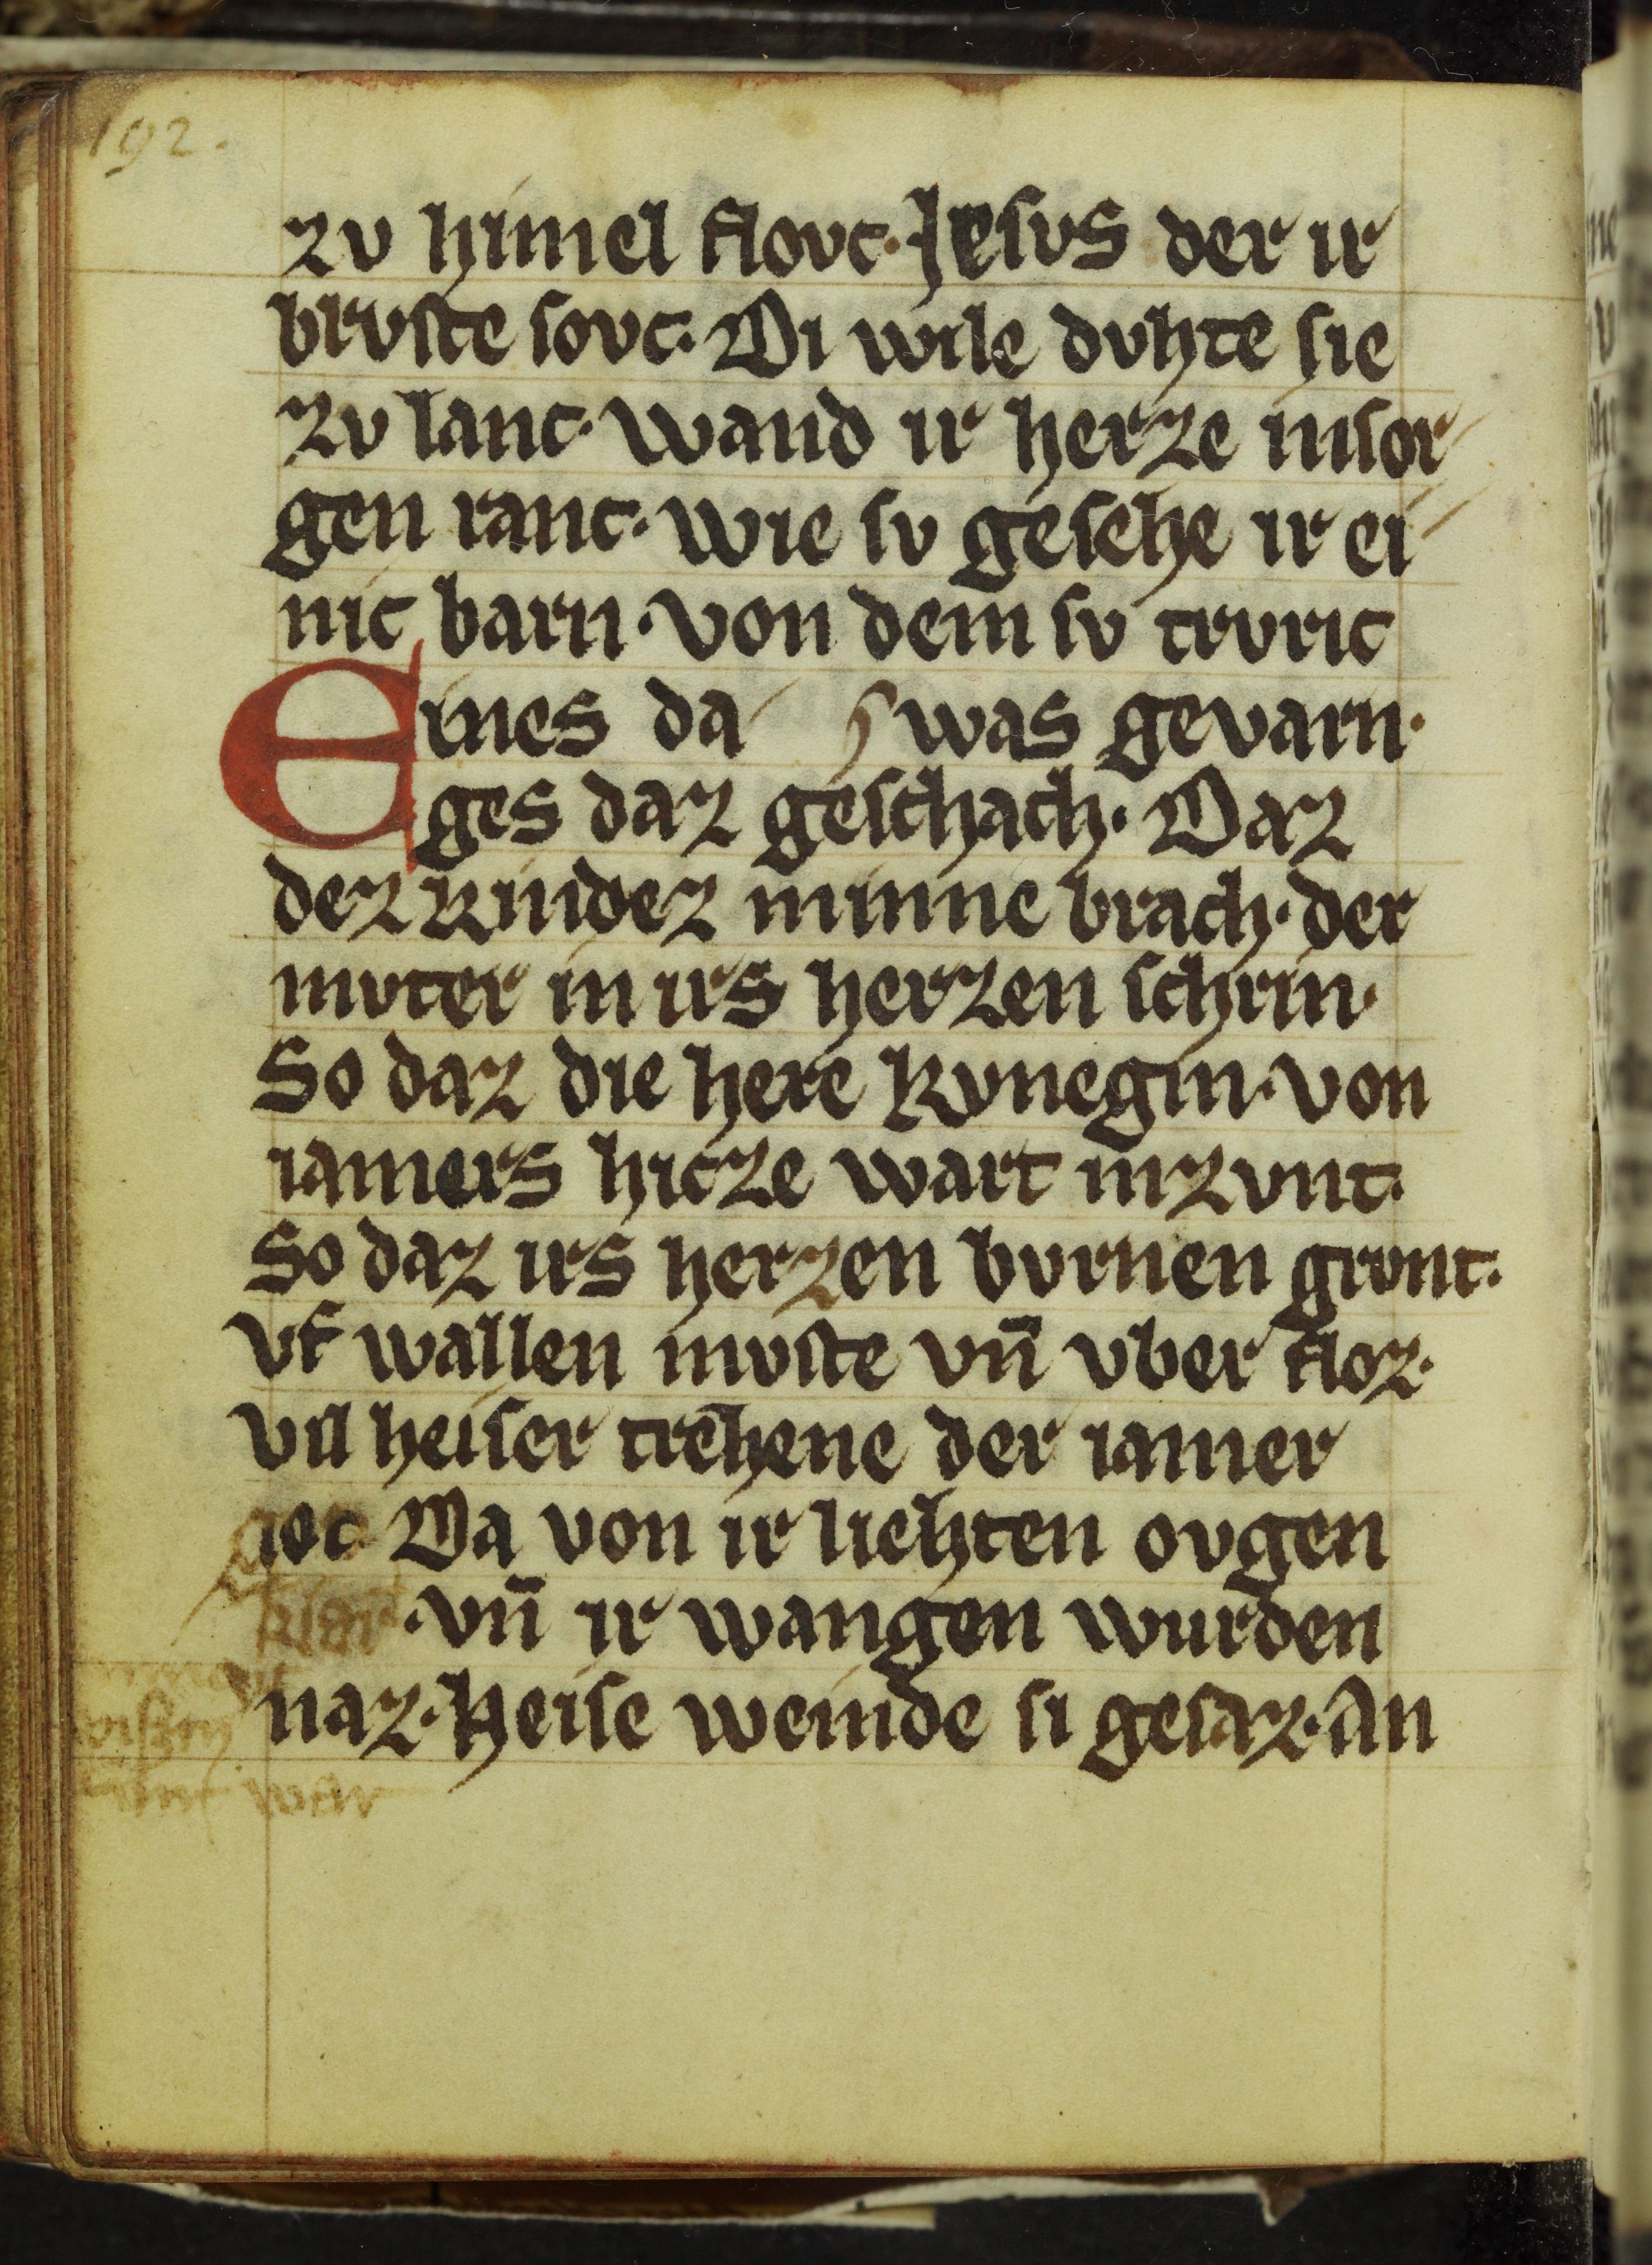 192.
zv himel flovc· Jesvs der ir
brvste sovc· Di wile dvhte sie
zv lanc· wand ir herze insor
gen ranc· wie sv gesehe ir ei
nic barn· von dem sv trvric
Eines da was gevarn·
ges daz geschach· Daz
dez kindez minne brach· der
mvter in irs herzen schrin·
So daz die here kvnegin· von
iamers hitze wart inzvnt·
So daz irs herzen bvrnen grvnt·
vf wallen mvste vn̄ vber floz·
vil heiser trehene der iamer
goc Da von ir liehten ovgen
klar ·vn̄ ir wangen wurden
naz· Heise weinde si gesaz· An